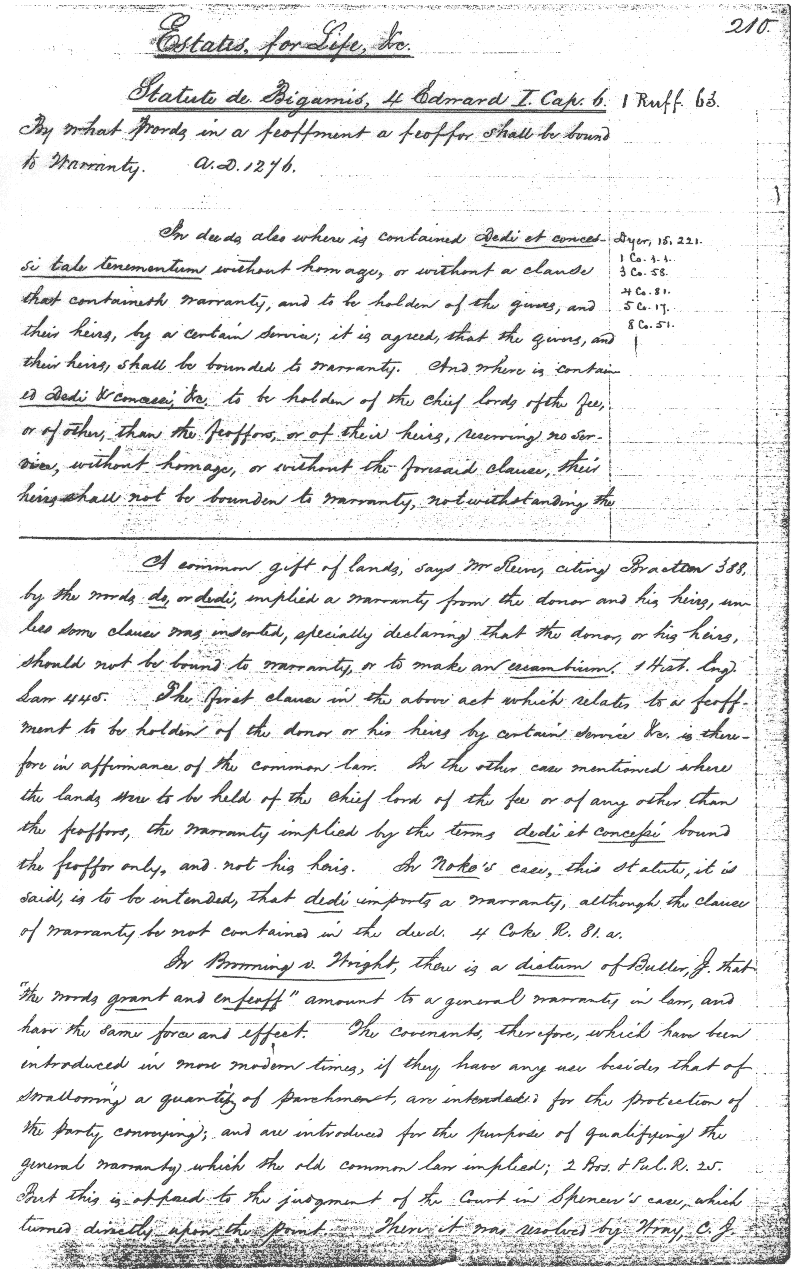 210.
Estates, for Life, &c.
Statute de Bigamis, 4 Edward I. Cap. 6. 1 Ruff. 63.
By what Words in a feoffment a feoffor shall be bound
to Warranty. A.D. 1276.
In deeds also where is contained Dedi et conces-
si tale tenementum without homage, or without a clause
that containeth warranty, and to be holden of the givers, and
their heirs, by a certain service; it is agreed, that the givers, and
their heirs, shall be bounded to warranty. And where is contain
ed Dedi & concessi, &c. to be holden of the chief lords of the fee,
or of other, than the feoffors, or of their heirs, reserving no ser-
vice, without homage, or without the foresaid clause, their
heirs shall not be bounden to warranty, notwithstanding the
Dyer, 15. 221.
1 Co. 1.1.
3 Co. 58.
4 Co. 81.
5 Co. 17.
8 Co. 51.
A common gift of lands, says Mr Reeve, citing Bracton 388,
by the words do, or dedi, implied a warranty from the donor and his heirs, un-
less some clause was inserted, specially declaring that the donor, or his heirs,
should not be bound to warranty, or to make an escambium. 1 Hist. Eng.
Law 445. The first clause in the above act which relates to a feoff-
ment to be holden of the donor or his heirs by certain service &c. is there-
fore in affirmance of the common law. In the other case mentioned where
the lands were to be held of the chief lord of the fee or of any other than
the feoffors, the warranty implied by the terms dedi et concessi bound
the feoffor only, and not his heirs. In Noke's case, this statute, it is
said, is to be intended, that dedi imports a warranty, although the clause
of warranty be not contained in the deed. 4 Coke R. 81. a.
In Browning v. Wright, there is a dictum of Buller, J. that
"the words grant and enfeoff" amount to a general warranty in law, and
have the same force and effect. The covenants, therefore, which have been
introduced in more modern times, if they have any use besides that of
swallowing a quantity of parchment, are intended for the protection of
the party conveying; and are introduced for the purpose of qualifying the
general warranty, which the old common law implied; 2 Bos. & Pul. R. 25.
But this is opposed to the judgment of the Court in Spencer's case, which
turned directly upon the point. There it was resolved by Wray, C. J.